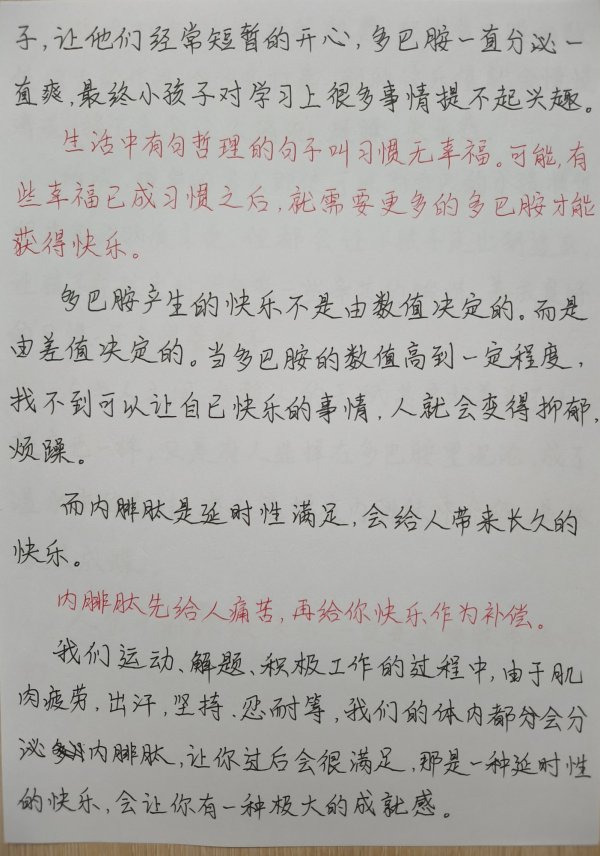 子，让他们经常短暂的开心，多巴胺一直分泌一
直爽，最终小孩子对学习上很多事情提不起兴趣。
生活中有句哲理的句子叫习惯无幸福。可能，有
些幸福已成习惯之后，就需要更多的多巴胺才能
获得快乐。
多巴胺产生的快乐不是由数值决定的。而是
由差值决定的。当多巴胺的数值高到一定程度，
找不到可以让自己快乐的事情，人就会变得抑郁，
烦躁。
而内腓肽是延时性满足，会给人带来长久的
快乐。
内腓肽先给人痛苦，再给你快乐作为补偿。
我们运动、解题、积极工作的过程中，由于肌
肉疲劳，出汗，坚持、忍耐等，我们的体内都分会分
泌内腓肽，让你过后会很满足，那是一种延时性
的快乐，会让你有一种极大的成就感。